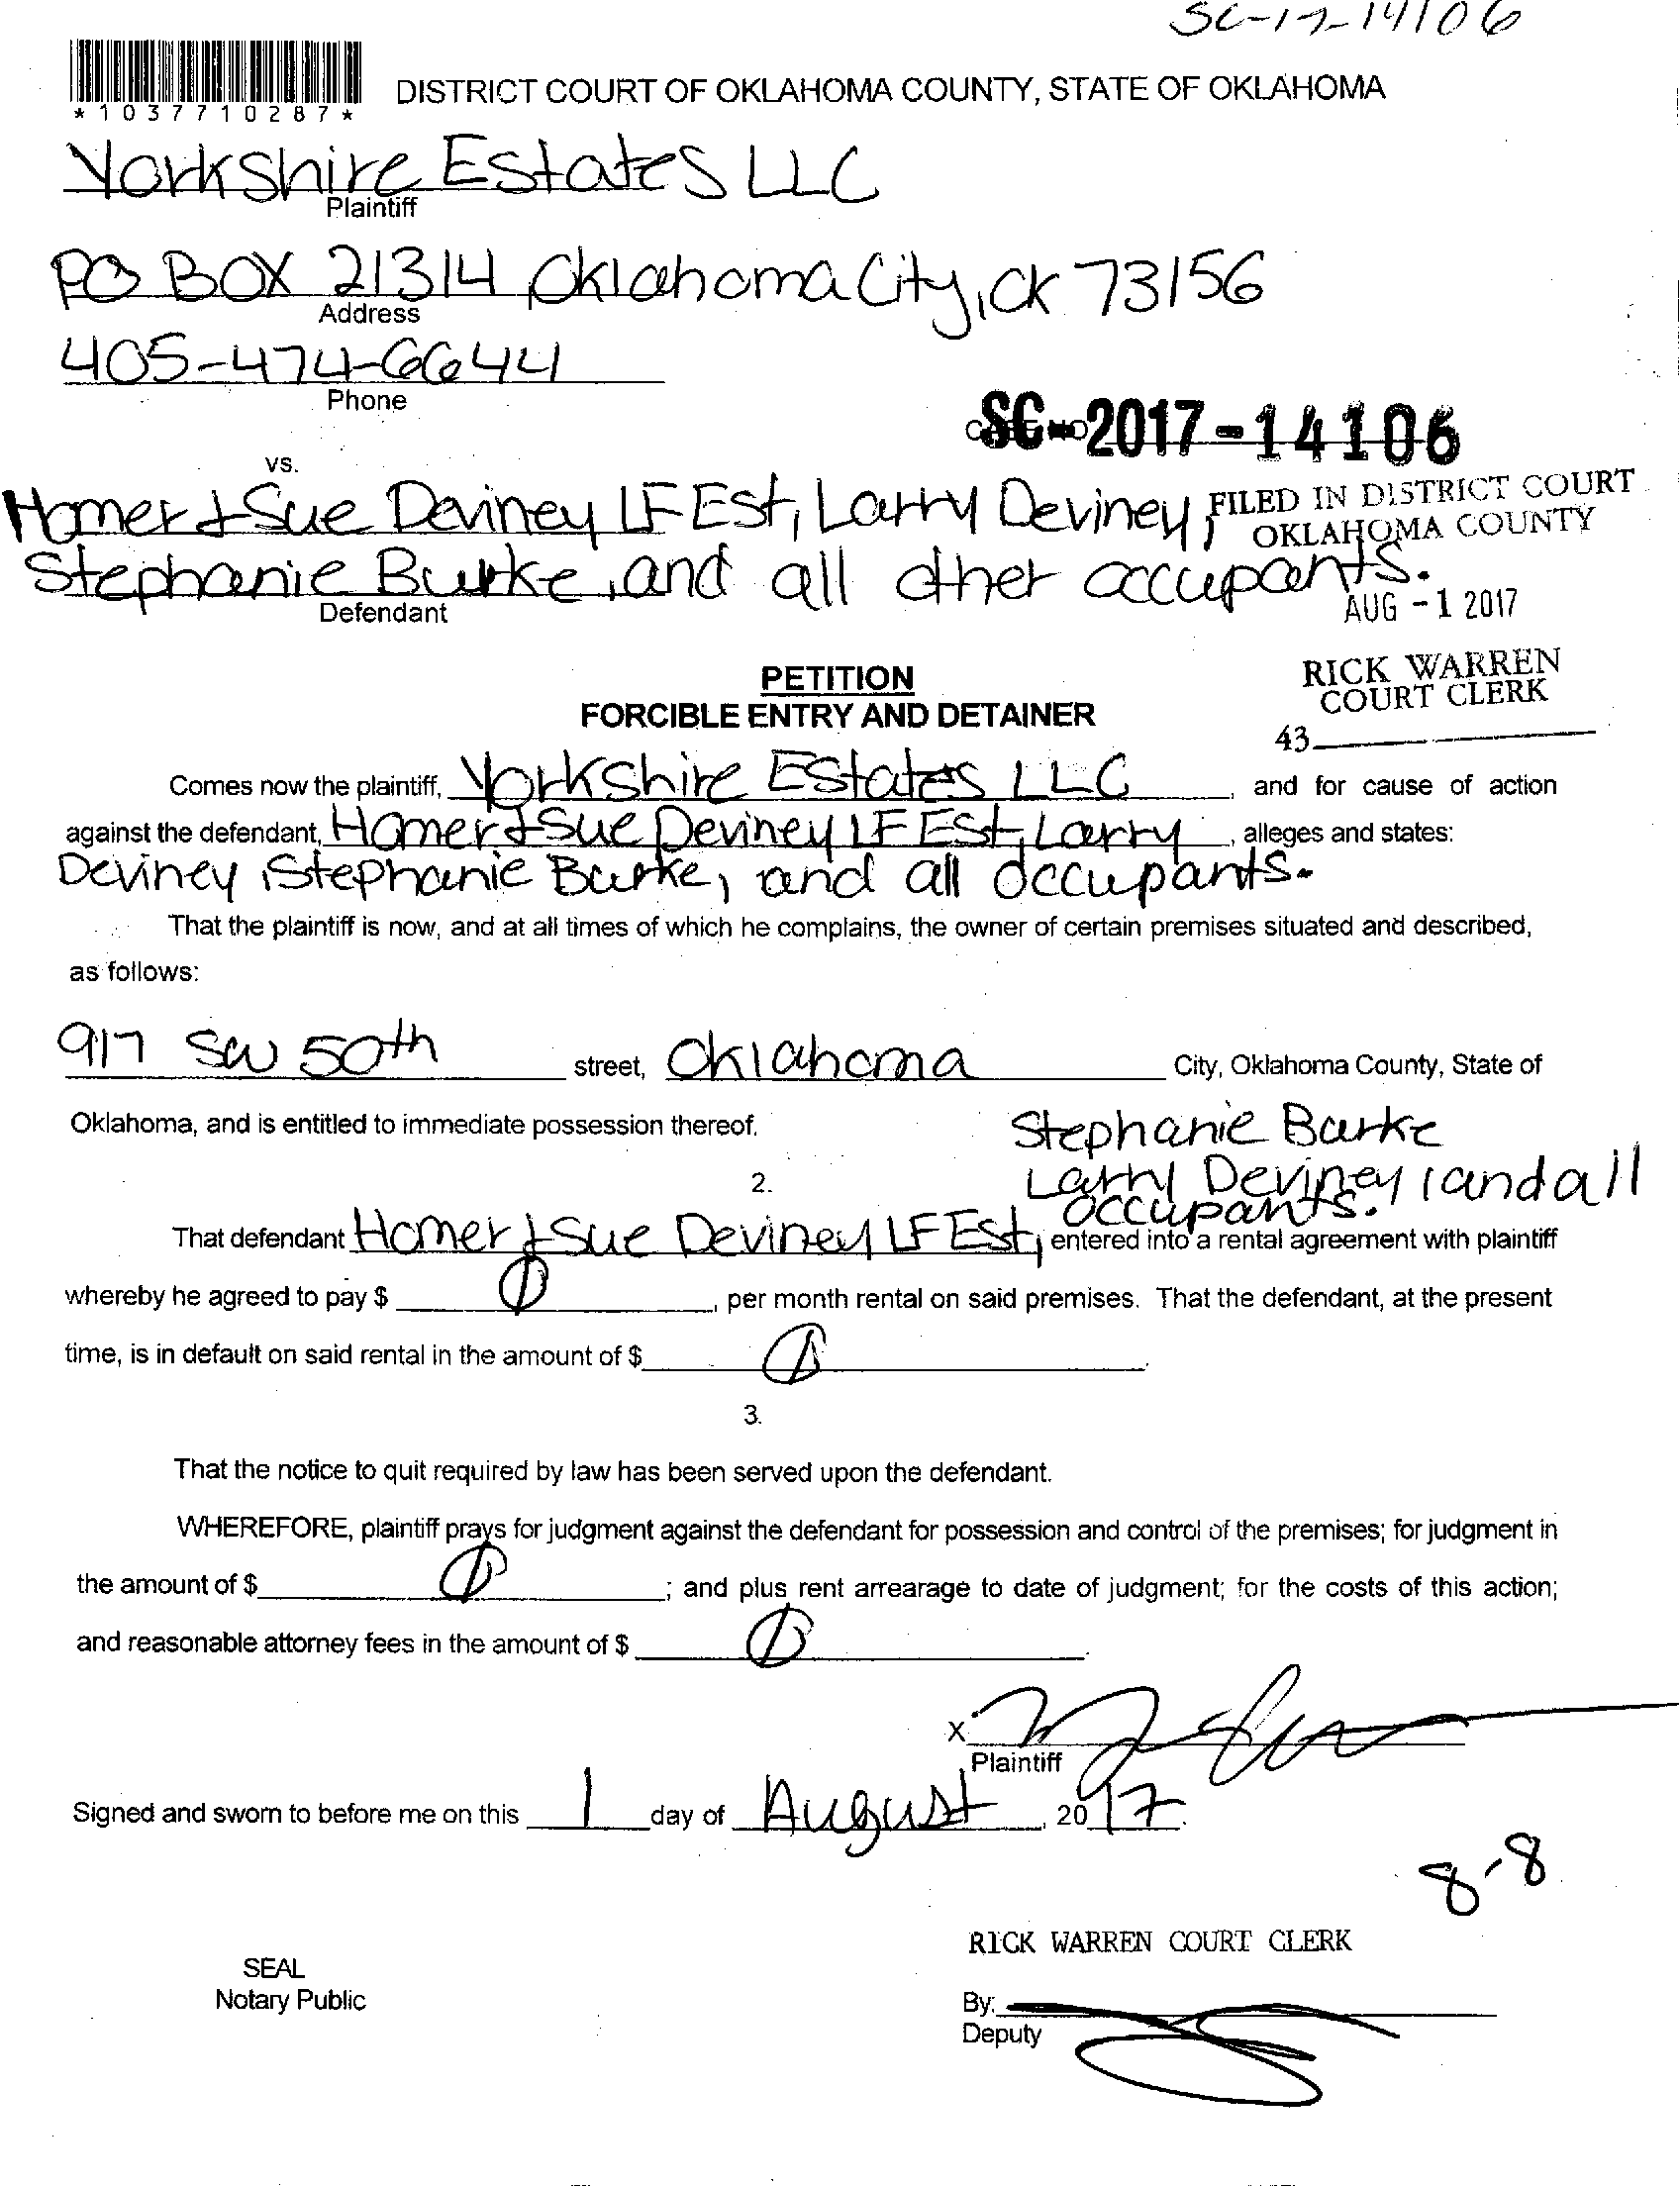 SC-17-14106
*1037710287*
DISTRICT COURT OF OKLAHOMA COUNTY, STATE OF OKLAHOMA
Yorkshire Estates LLC
Plaintiff
PO BOX 21314 Oklahoma City, OK 73156
Address
405-474-6644
Phone
SC-2017-14106
vs.
Homer & Sue Deviney LF Est, Larry Deviney,
FILED IN DISTRICT COURT
OKLAHOMA COUNTY
Stephanie Burke, and all other occupants.
Defendant
AUG -1 2017
PETITION
FORCIBLE ENTRY AND DETAINER
RICK WARREN
COURT CLERK
43
Comes now the plaintiff, Yorkshire Estates LLC, and for cause of action
against the defendant, Homer & Sue Deviney LF Est, Larry, alleges and states:
Deviney, Stephanie Burke, and all occupants.
That the plaintiff is now, and at all times of which he complains, the owner of certain premises situated and described,
as follows:
917 SW 50th street, Oklahoma City, Oklahoma County, State of
Oklahoma, and is entitled to immediate possession thereof.
Stephanie Burke
2.
Larry Deviney, and all
occupants.
That defendant Homer & Sue Deviney LF Est, entered into a rental agreement with plaintiff
whereby he agreed to pay $ Ø, per month rental on said premises. That the defendant, at the present
time, is in default on said rental in the amount of $ Ø.
3.
That the notice to quit required by law has been served upon the defendant.
WHEREFORE, plaintiff prays for judgment against the defendant for possession and control of the premises; for judgment in
the amount of $ Ø; and plus rent arrearage to date of judgment; for the costs of this action;
and reasonable attorney fees in the amount of $ Ø.
X
Plaintiff
Signed and sworn to before me on this 1 day of August, 2017.
8-8
RICK WARREN COURT CLERK
SEAL
Notary Public
By:
Deputy